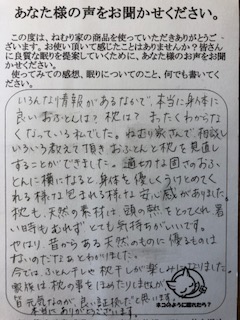 あなた様の声をお聞かせください。
この度は、ねむり家の商品を使っていただきありがとうご
ざいます。お使い頂いて感じたことはありませんか？皆さん
に良質な眠りを提案していくために、あなた様のお声をお聞
かせください。
使ってみての感想、眠りについてのこと、何でも書いてく
ださい。
いろんな情報があるなかで、本当に身体に
良いおふとんは？枕は？まったくわからな
くなっている私でした。ねむり家さんで、相談し
いろいろ教えて頂きおふとんと枕を見直し
することができました。適切な固さのおふ
とんに横になると身体を優しくうけとめてく
れる様な包まれる様な安心感がありました。
枕も、天然の素材は頭の熱をとってくれ暑
い時もむれず とても気持ちがいいです。
やはり、昔からある天然のものに優るものは
ないのだなぁとわかりました。
今では、ふとん干しや枕干しが楽しみになりました。
家族は 枕の事をほめたりしませんが、
皆元気なのが、良い証拠だと思います。
本当にありがとうございます。
ネコのように眠れたら？